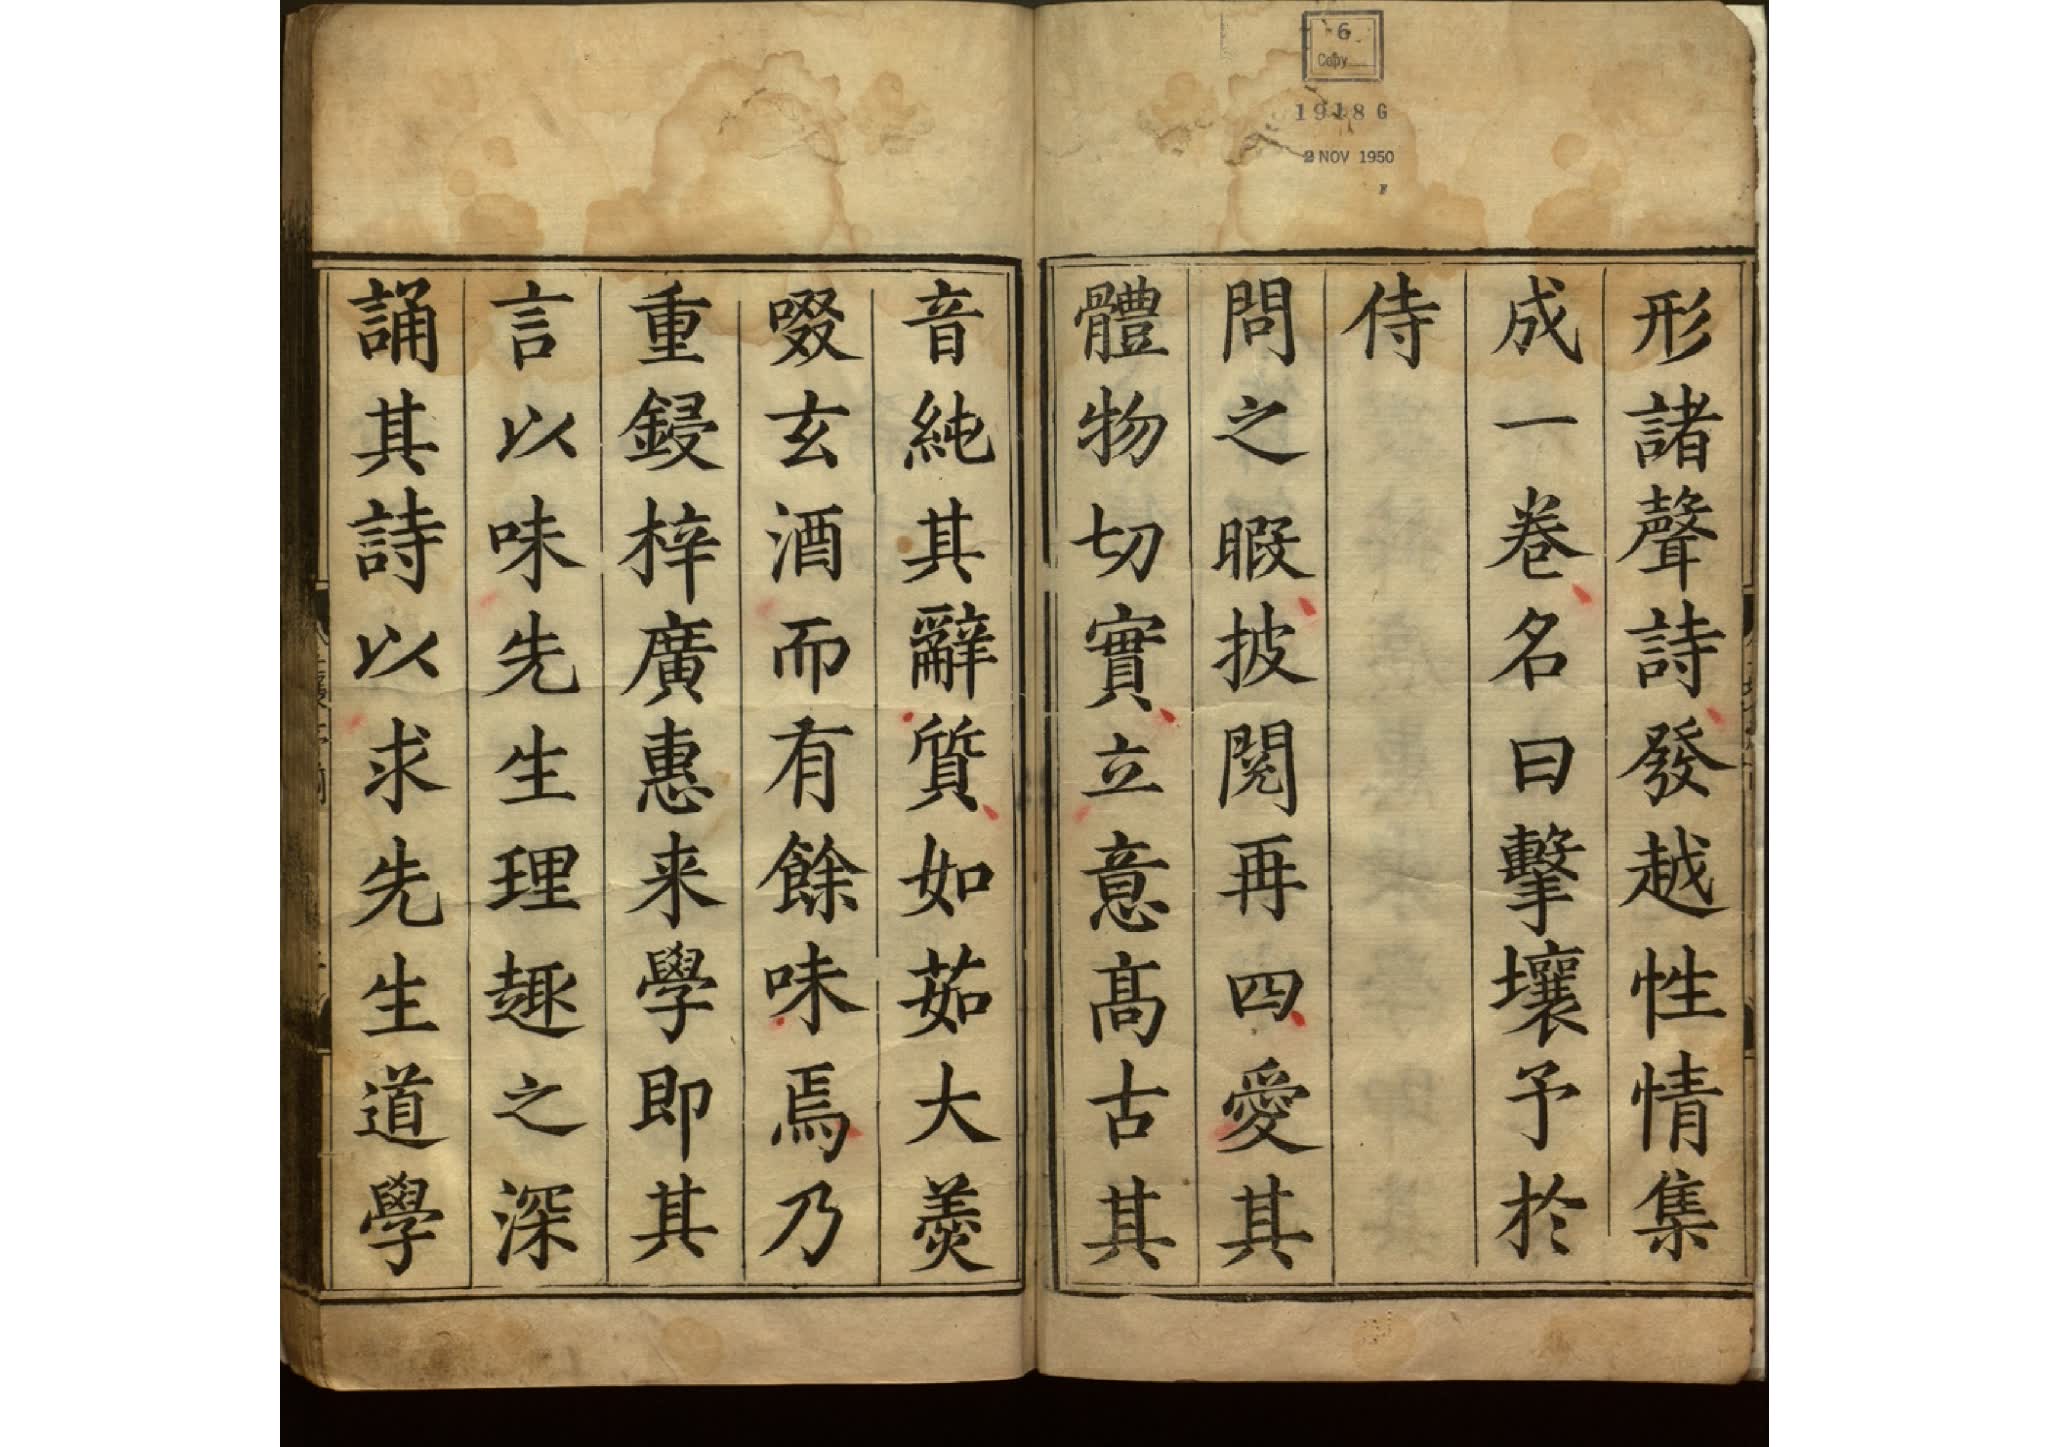 6
Copy
1918 G
2 NOV 1950
F
形諸聲詩發越性情集
成一卷名曰擊壤予於
侍
問之暇披閱再四愛其
體物切實立意髙古其
音純其辭質如茹大羮
啜玄酒而有餘味焉乃
重鋟梓廣惠来學即其
言以味先生理趣之深
誦其詩以求先生道學